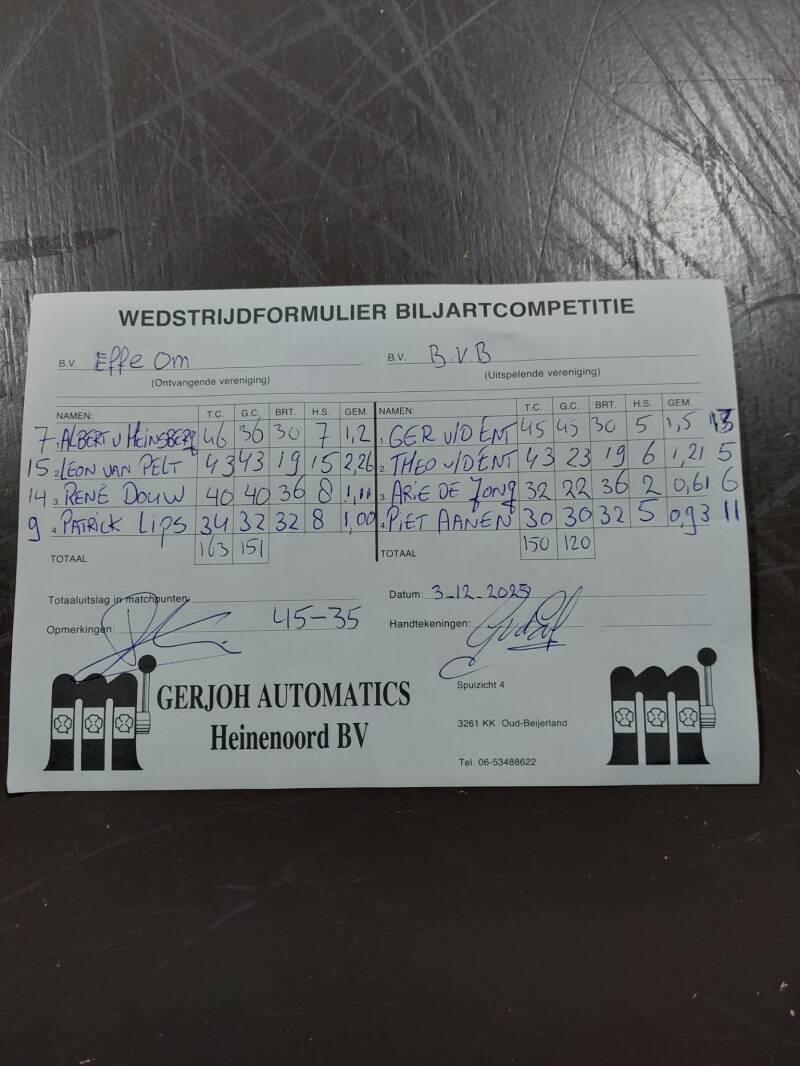 WEDSTRIJDFORMULIER BILJARTCOMPETITIE
B.V. Effe Om B.V. B.V.B
(Ontvangende vereniging) (Uitspelende vereniging)
NAMEN: T.C. G.C. BRT. H.S. GEM. NAMEN: T.C. G.C. BRT. H.S. GEM.
7 1. ALBERT V HEINSBERG 46 36 30 7 1,2 1. GER V/D ENT 45 45 30 5 1,5 13
15 2. LEON VAN PELT 43 43 19 15 2,26 2. THEO V/D ENT 43 23 19 6 1,21 5
14 3. RENÉ DOUW 40 40 36 8 1,11 3. ARIE DE JONG 32 22 36 2 0,61 6
9 4. PATRICK LIPS 34 32 32 8 1,00 4. PIET AANEN 30 30 32 5 0,93 11
TOTAAL 163 151 TOTAAL 150 120
Totaaluitslag in matchpunten: Datum: 3-12-2025
Opmerkingen: 45-35 Handtekeningen:
GERJOH AUTOMATICS
Heinenoord BV
Spuizicht 4
3261 KK Oud-Beijerland
Tel. 06-53488622